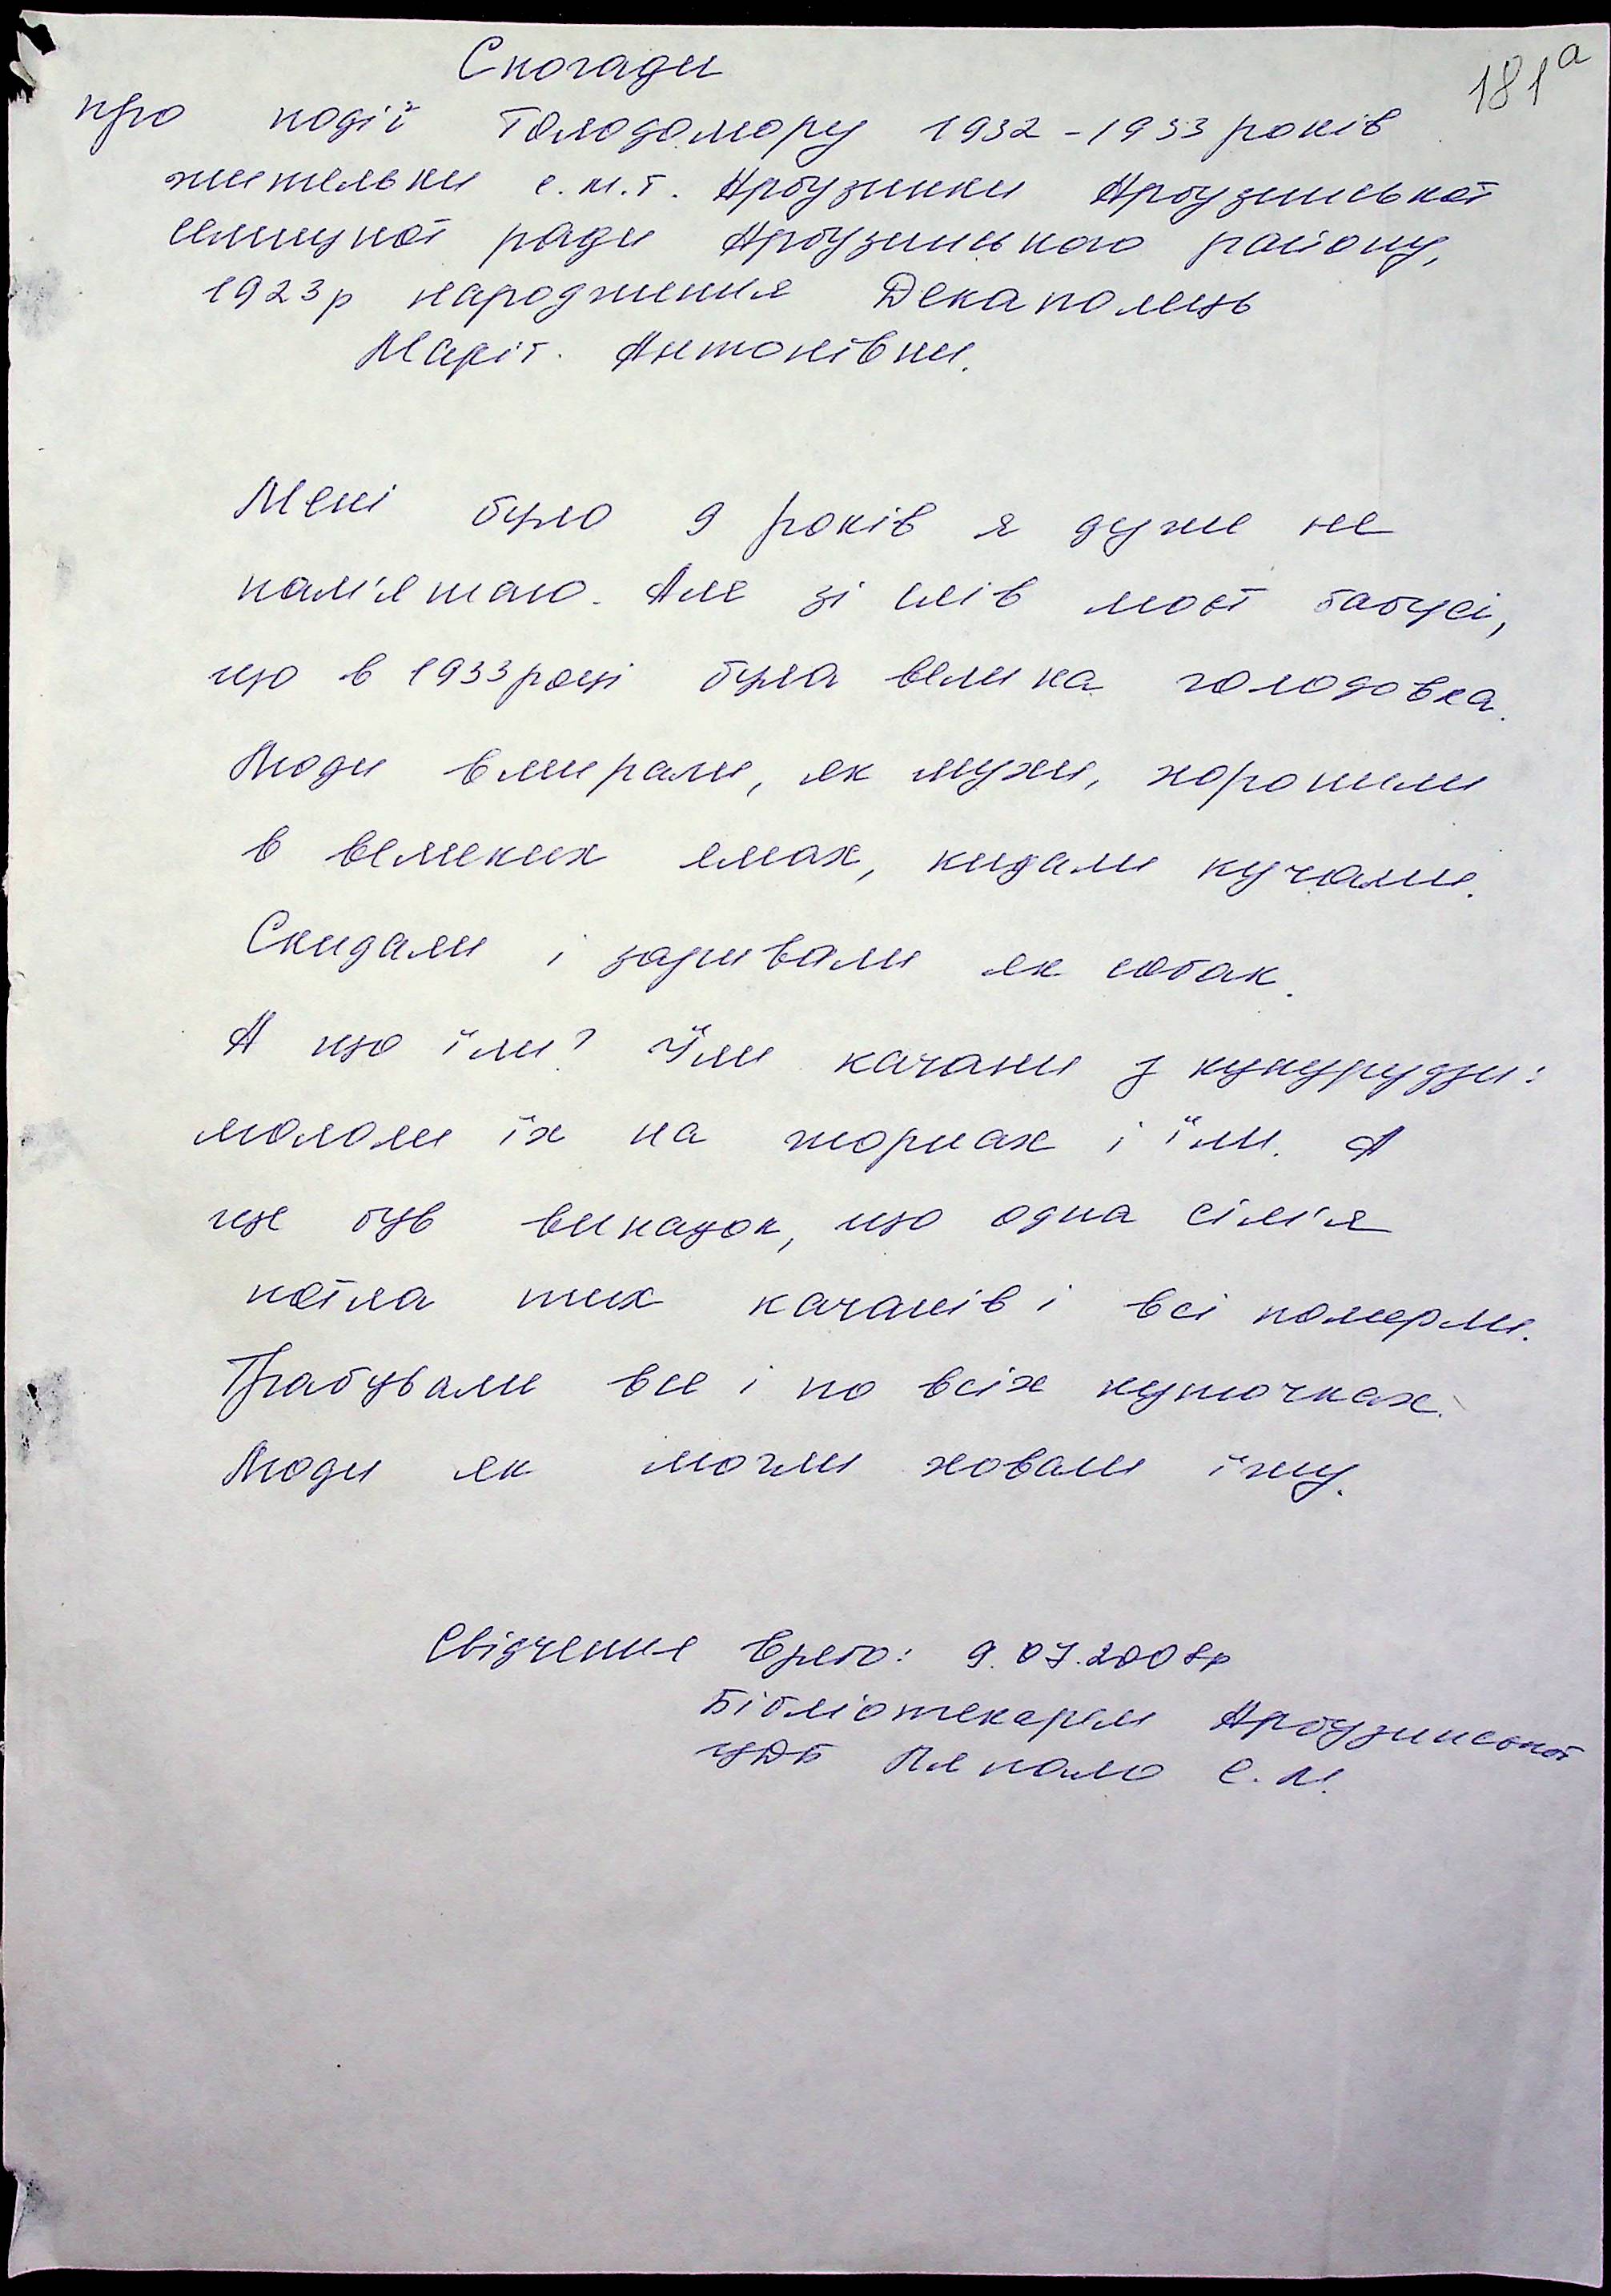 181а
Спогади
про події Голодомору 1932-1933 років
жительки с.м.т. Арбузинки Арбузинської
селищної ради Арбузинського району,
1923р народження Декаполець
Марії Антонівни.
Мені було 9 років я дуже не
пам'ятаю. Але зі слів моєї бабусі,
що в 1933 році була велика голодовка.
Люди вмирали, як мухи, хоронили
в великих ямах, кидали кучами.
Скидали і заривали як собак.
А що їли? Їли качани з кукурудзи:
мололи їх на жорнах і їли. А
ще був випадок, що одна сім'я
поїла тих качанів і всі померли.
Грабували все і по всіх куточках.
Люди як могли ховали їжу.
Свідчення брато: 9.07.2008р
Бібліотекарем Арбузинської
ЦДБ Ляпало С.М.